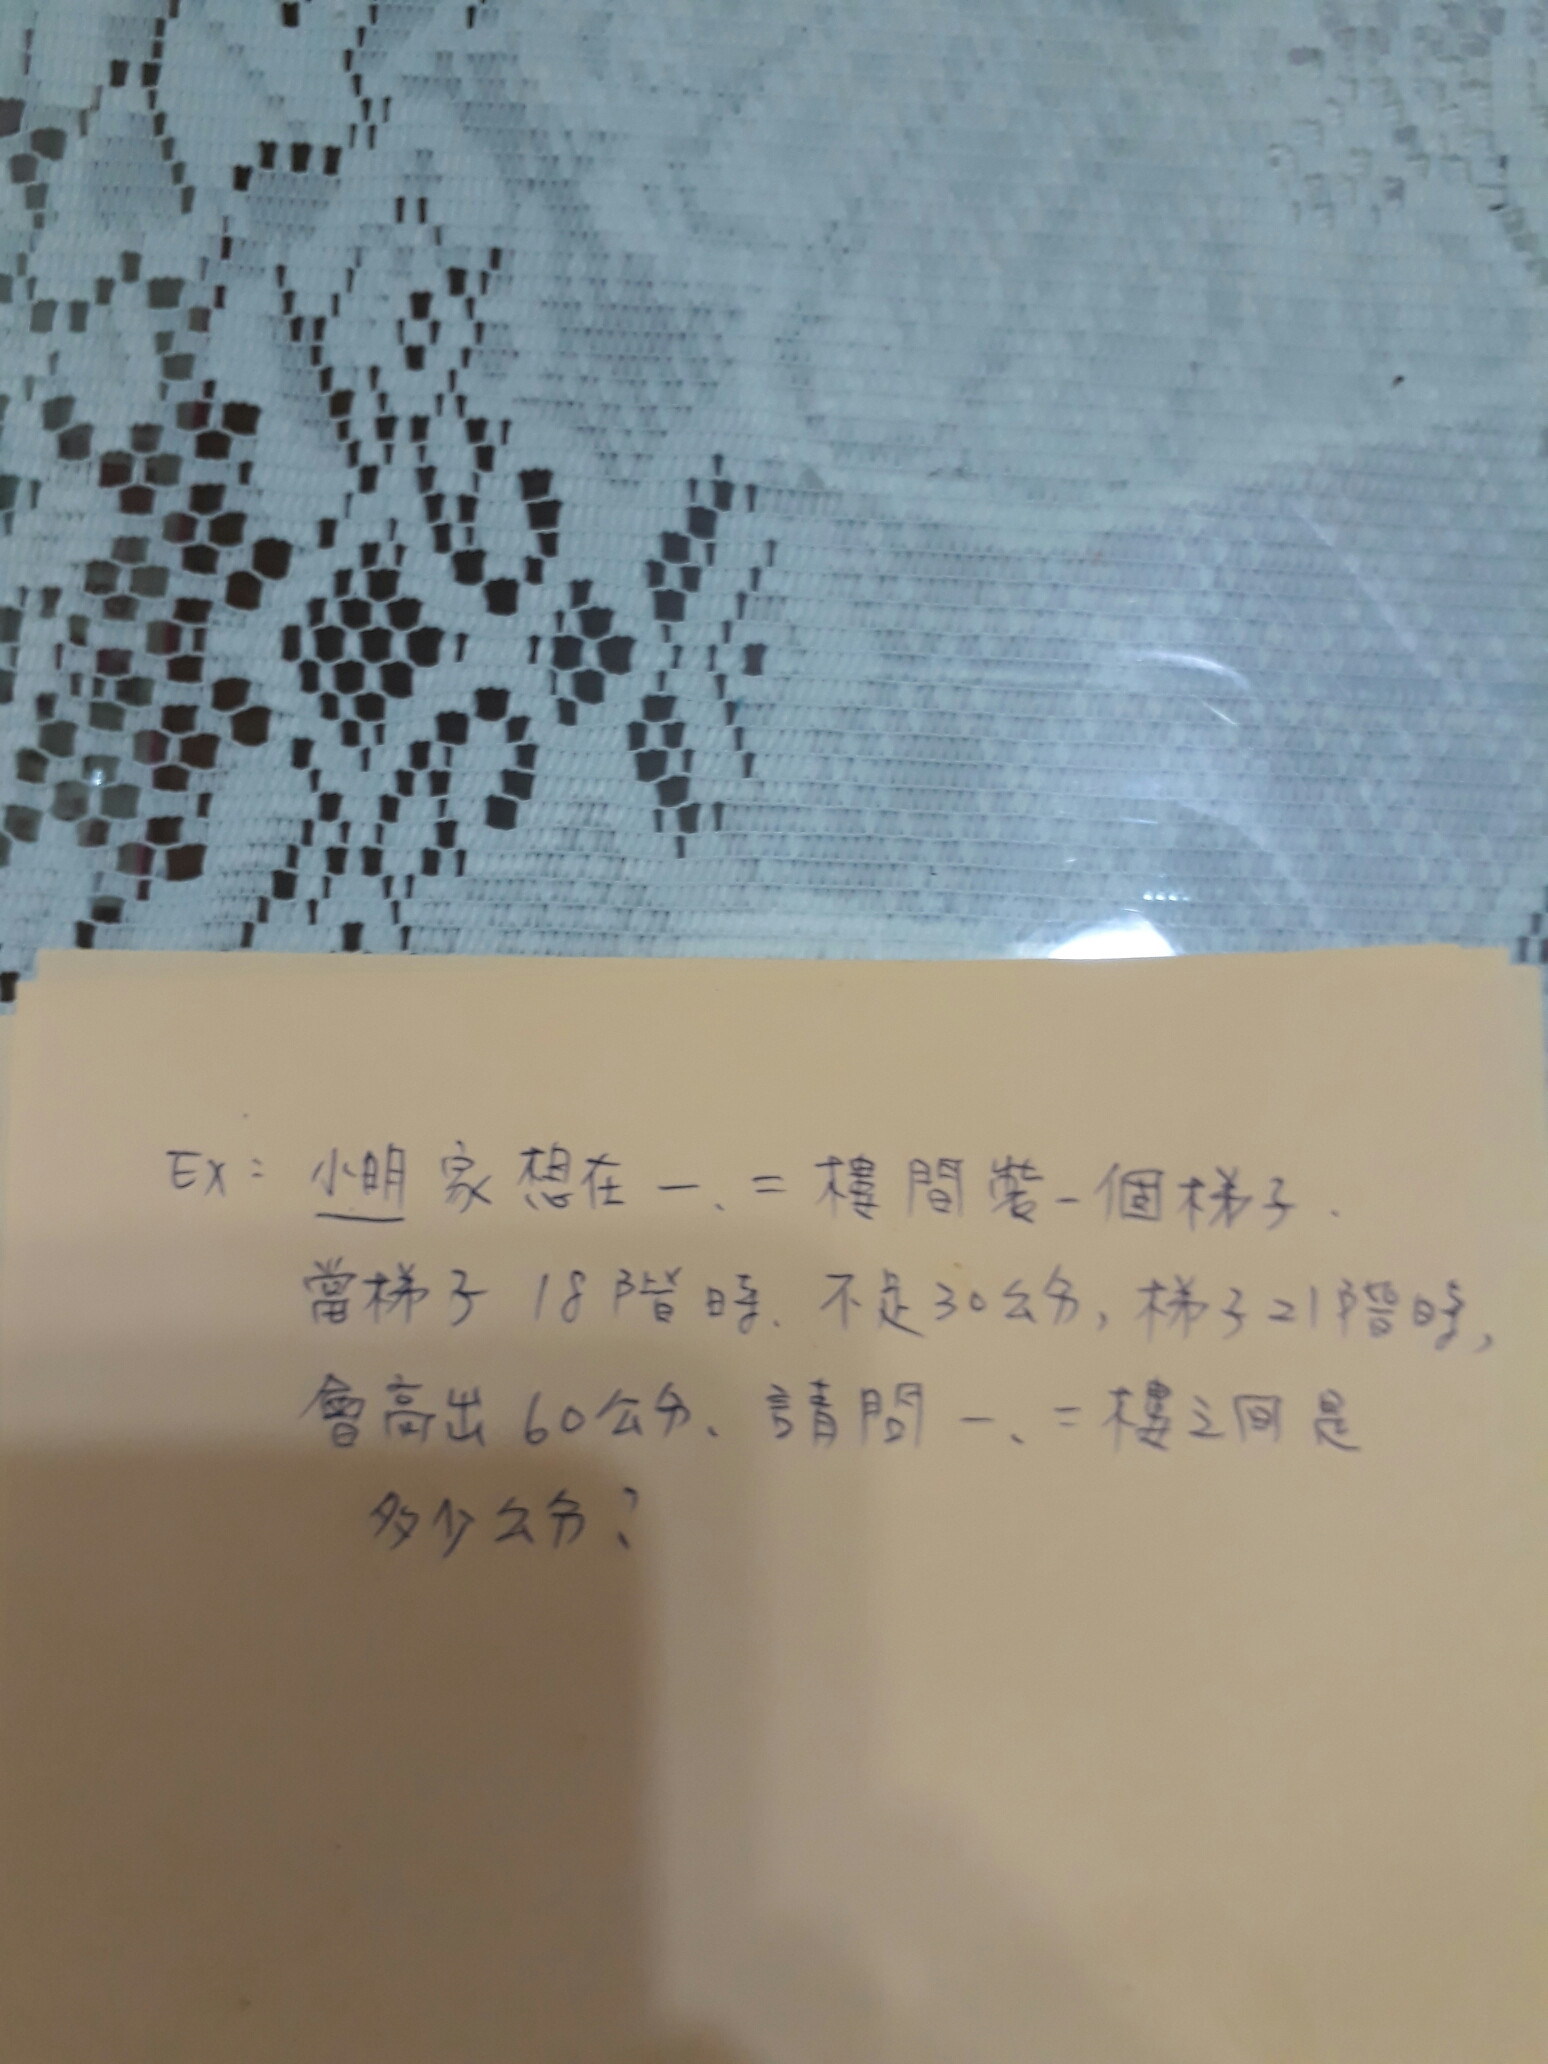 Ex：小明家想在一、二樓間裝一個梯子.
當梯子18階時、不足30公分，梯子21階時，
會高出60公分、請問一、二樓之间是
多少公分？